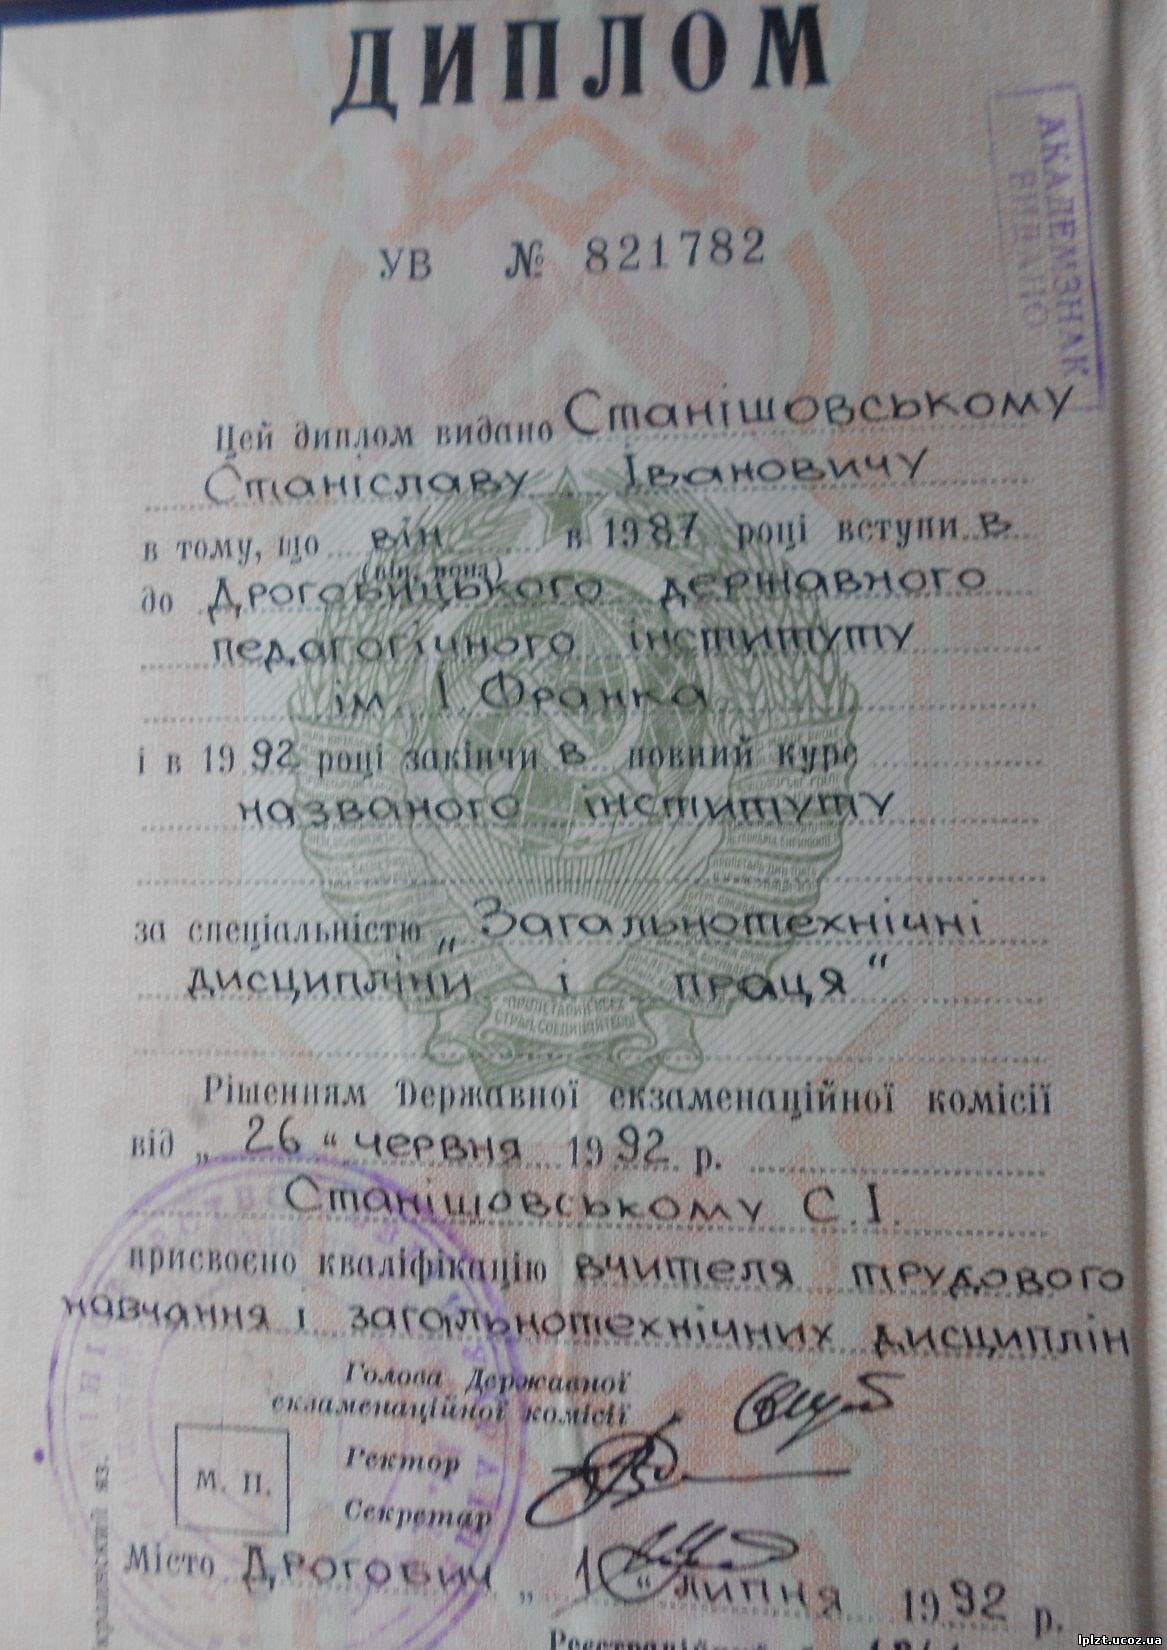 ДИПЛОМ
АКАДЕМЗНАК
ВИДАНО
УВ № 821782
Цей диплом видано Станішовському
Станіславу Івановичу
в тому, що він в 1987 році вступив
(він, вона)
до Дрогобицького державного
педагогічного інституту
ім І. Франка
і в 1992 році закінчив повний курс
названого інституту
за спеціальністю „Загальнотехнічні
дисципліни і праця“
ПРОЛЕТАРИИ ВСЕХ
СТРАН, СОЕДИНЯЙТЕСЬ!
Рішенням Державної екзаменаційної комісії
від „26“ червня 1992 р.
Станішовському С.І.
присвоєно кваліфікацію вчителя трудового
навчання і загальнотехнічних дисциплін
Голова Державної
екзаменаційної комісії
Ректор
М. П.
Секретар
Місто Дрогобич „1“ липня 1992 р.
lplzt.ucoz.ua